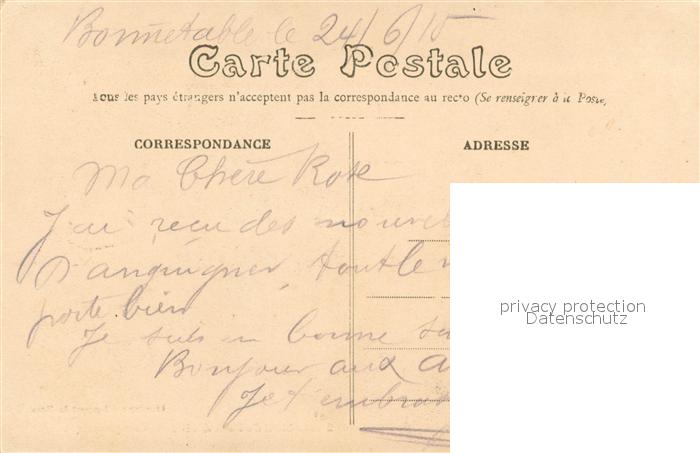 Bonnétable le 24/6/15
Carte Postale
Tous les pays étrangers n'acceptent pas la correspondance au recto (Se renseigner à la Poste)
CORRESPONDANCE
ADRESSE
Ma Chère Rose
J'ai reçu des nouvel
D'anguigner, tout le
porte bien
Je suis en bonne
Bonjour aux
Je t'embras
privacy protection
Datenschutz